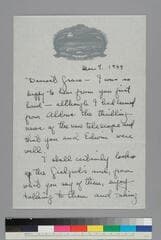 1, 1949
Dearest Grace — I was so
happy to hear from you first
hand — although I had learned
from Aldous the thrilling
news of the new telescope and
that you and Edwin were
well.
I shall certainly look
up the and, from
what you say of them, enjoy
talking to them and